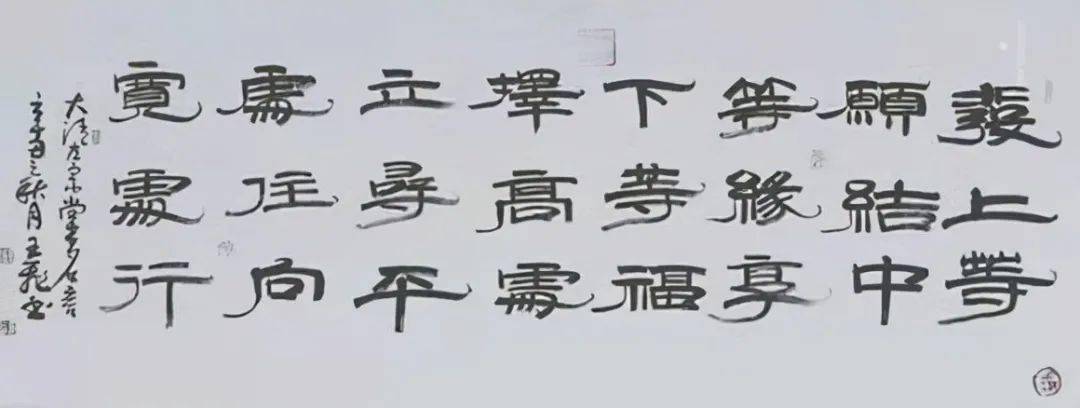 發上等
願結中
等緣享
下等福
擇高處
立尋平
處住向
寬處行
大清左宗棠名言
之秋月王書